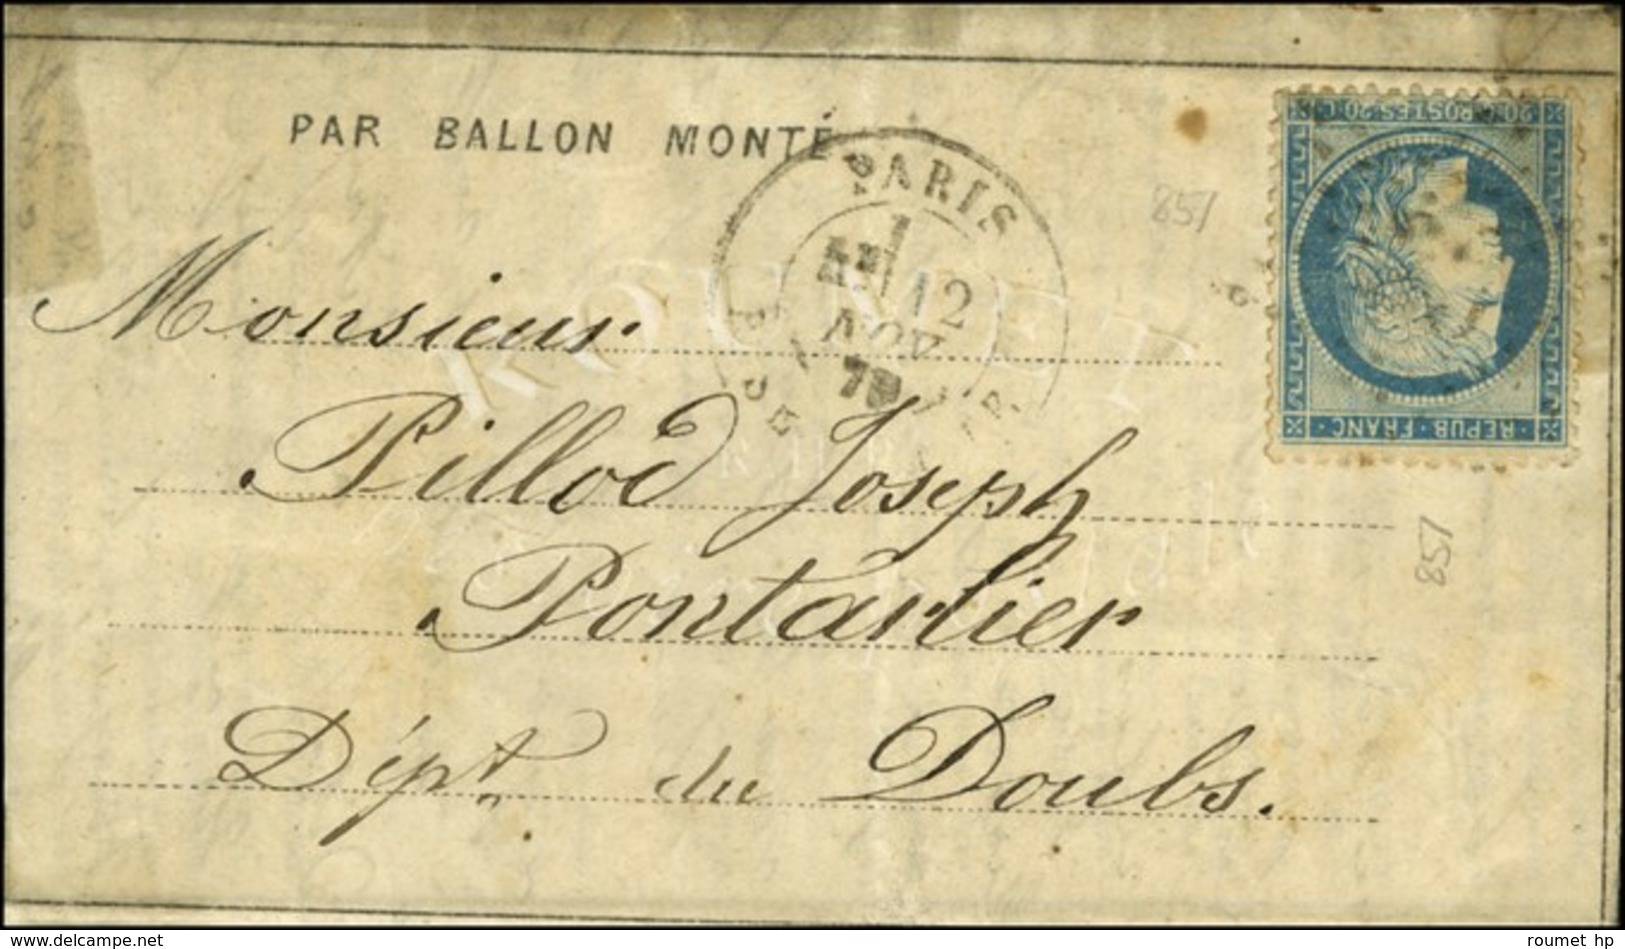 PAR BALLON MONTÉ
PARIS
12
NOV
70
20 C POSTES 20 C
REPUB · FRANC ·
851
851
Monsieur
Pillod Joseph
Pontarlier
Dépt. du Doubs.
ROUMET
www.delcampe.net
roumet hp